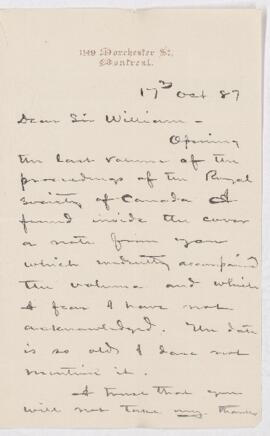 1149 Dorchester St.
Montreal.
17th Oct 87
Dear Sir William -
Opening
the last volume of the
proceedings of the Royal
Society of Canada I
found inside the cover
a note from you
which
the volume and which
I fear I have not
acknowledged. The date
is so old I dare not
mention it.
I trust that you
will not take my thanks